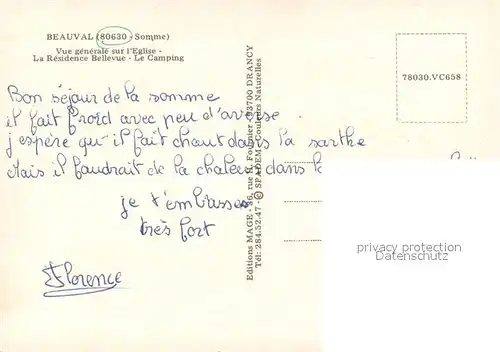 BEAUVAL (80630 - Somme)
Vue générale sur l'Eglise -
La Résidence Bellevue - Le Camping
Bon séjour de la somme
il fait froid avec peu d'averse.
j'espère qu'il fait chaut dans la sarthe
Mais il faudrait de la chaleur dans la
je t'embrasse
très fort
Florence
Editions MAGE - 86, rue H. Fournier, 93700 DRANCY
Tél: 284.52.47 - © SPADEM - Couleurs Naturelles
78030.VC658
privacy protection!
Datenschutz